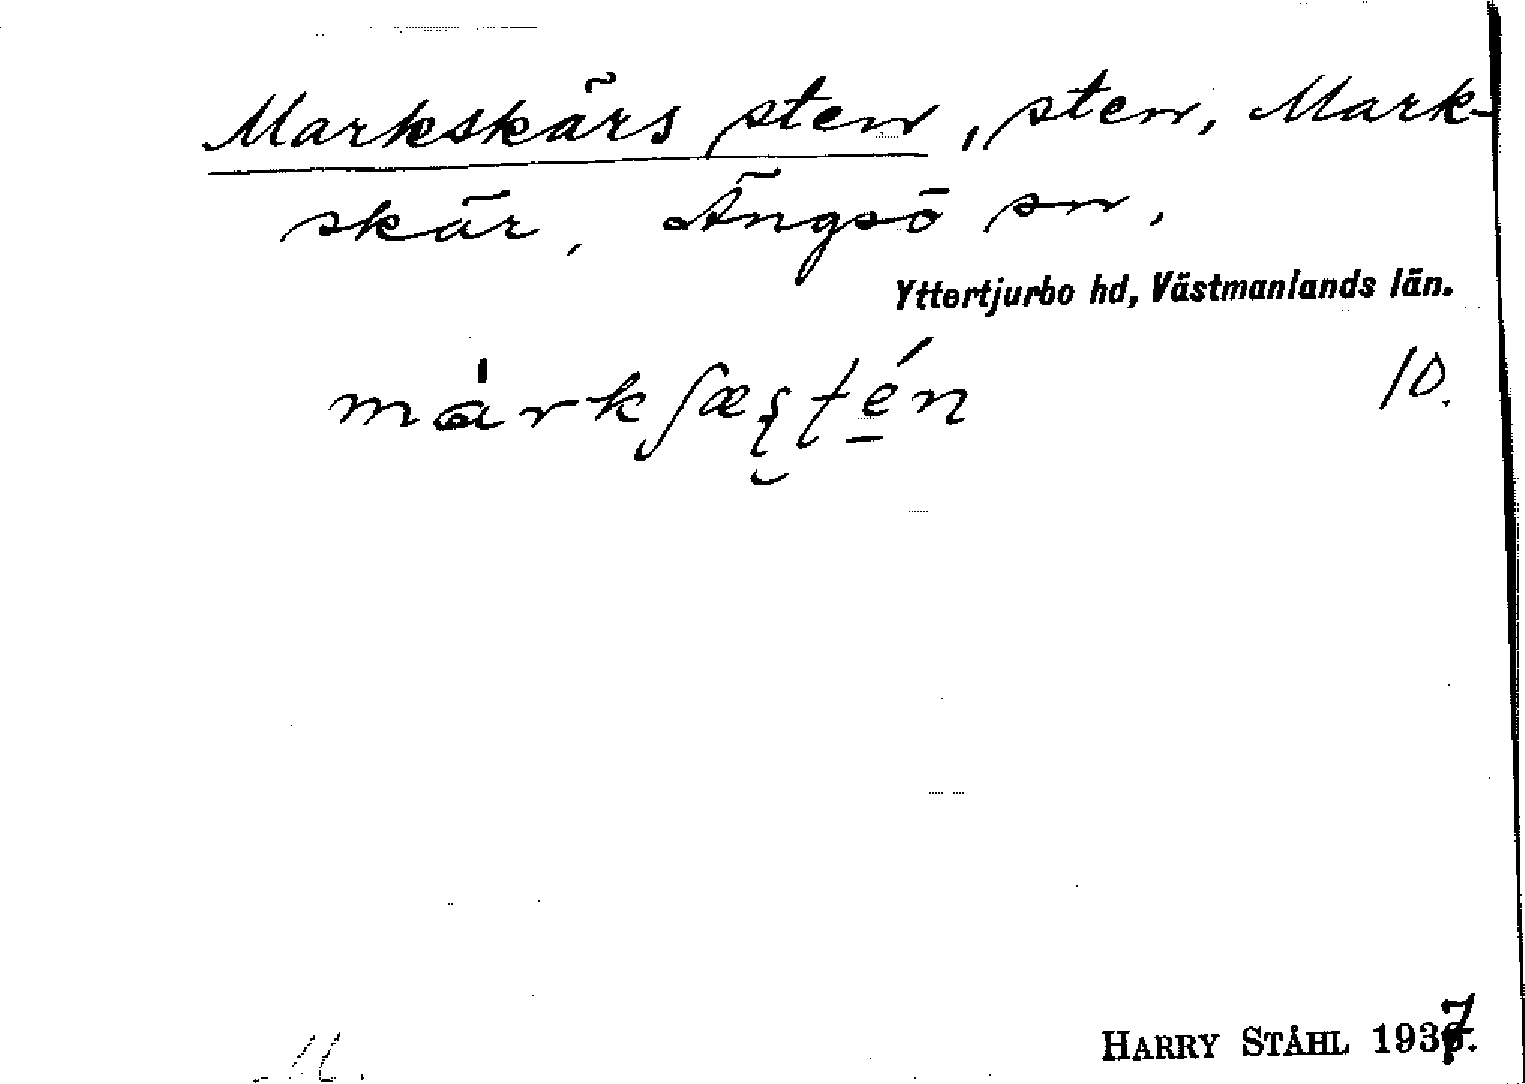 Markskärs sten, sten, Mark-
skär, Ängsö sn.
Yttertjurbo hd, Västmanlands län.
10.
HARRY STÅHL 1937.